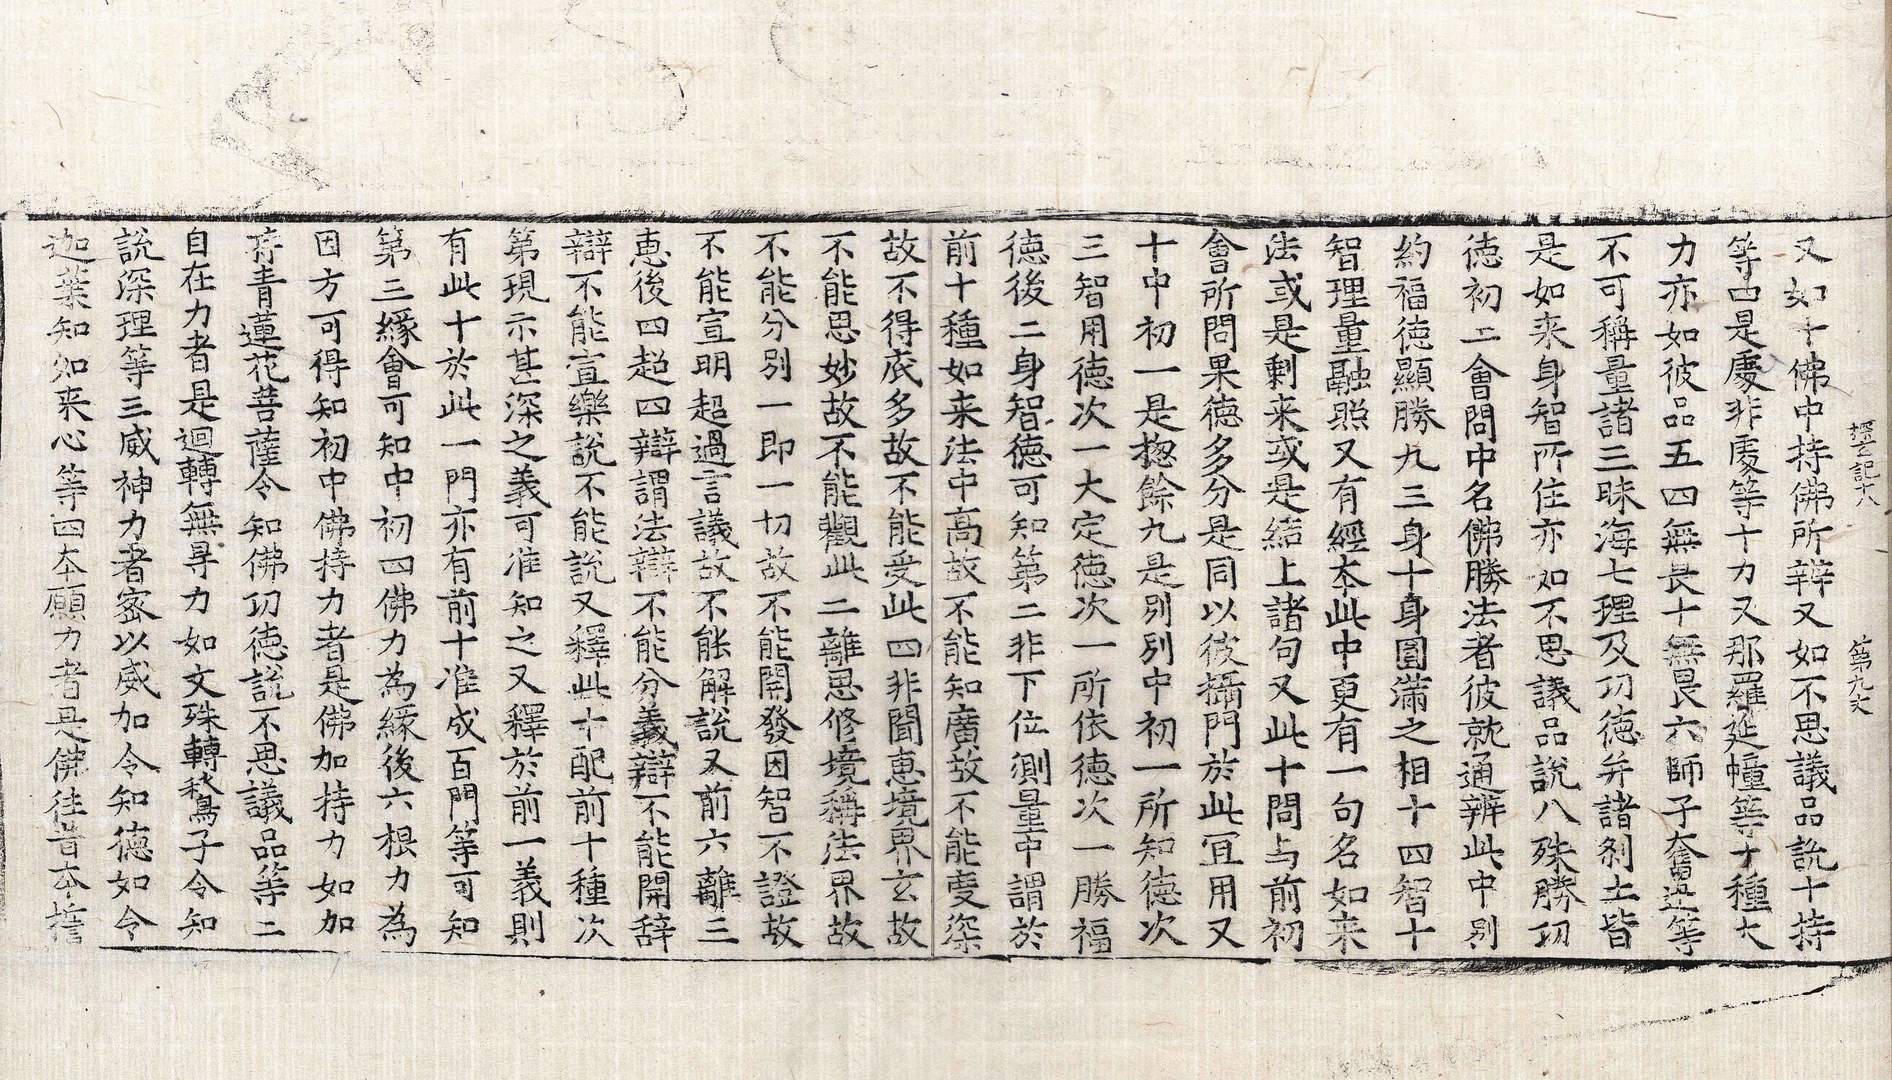 探玄記十八　第九丈
又如十佛中持佛所辨又如不思議品說十持
等四是處非處等十力又那羅延幢等十種大
力亦如彼品五四無畏十無畏六師子奮迅等
不可稱量諸三昧海七理及功徳并諸刹土皆
是如来身智所住亦如不思議品說八殊勝功
徳初二會問中名佛勝法者彼就通辨此中別
約福徳顯勝九三身十身圓滿之相十四智十
智理量融照又有經本此中更有一句名如来
法或是剰来或是結上諸句又此十問与前初
會所問果徳多分是同以彼攝門於此冝用又
十中初一是揔餘九是別別中初一所知徳次
三智用徳次一大定徳次一所依徳次一勝福
徳後二身智徳可知第二非下位測量中謂於
前十種如来法中高故不能知廣故不能度深
故不得底多故不能受此四非聞恵境界玄故
不能思妙故不能觀此二離思修境稱法界故
不能分別一即一切故不能開發因智不證故
不能宣明超過言議故不能解說又前六離三
恵後四超四辯謂法辯不能分義辯不能開辞
辯不能宣樂說不能說又釋此十配前十種次
第現示甚深之義可准知之又釋於前一義則
有此十於此一門亦有前十准成百門等可知
第三緣會可知中初四佛力為緣後六根力為
因方可得知初中佛持力者是佛加持力如加
持青蓮花菩薩令知佛功徳說不思議品等二
自在力者是迴轉無导力如文殊轉鶖子令知
說深理等三威神力者宻以威加令知徳如令
迦葉知如来心等四本願力者是佛往昔本擔